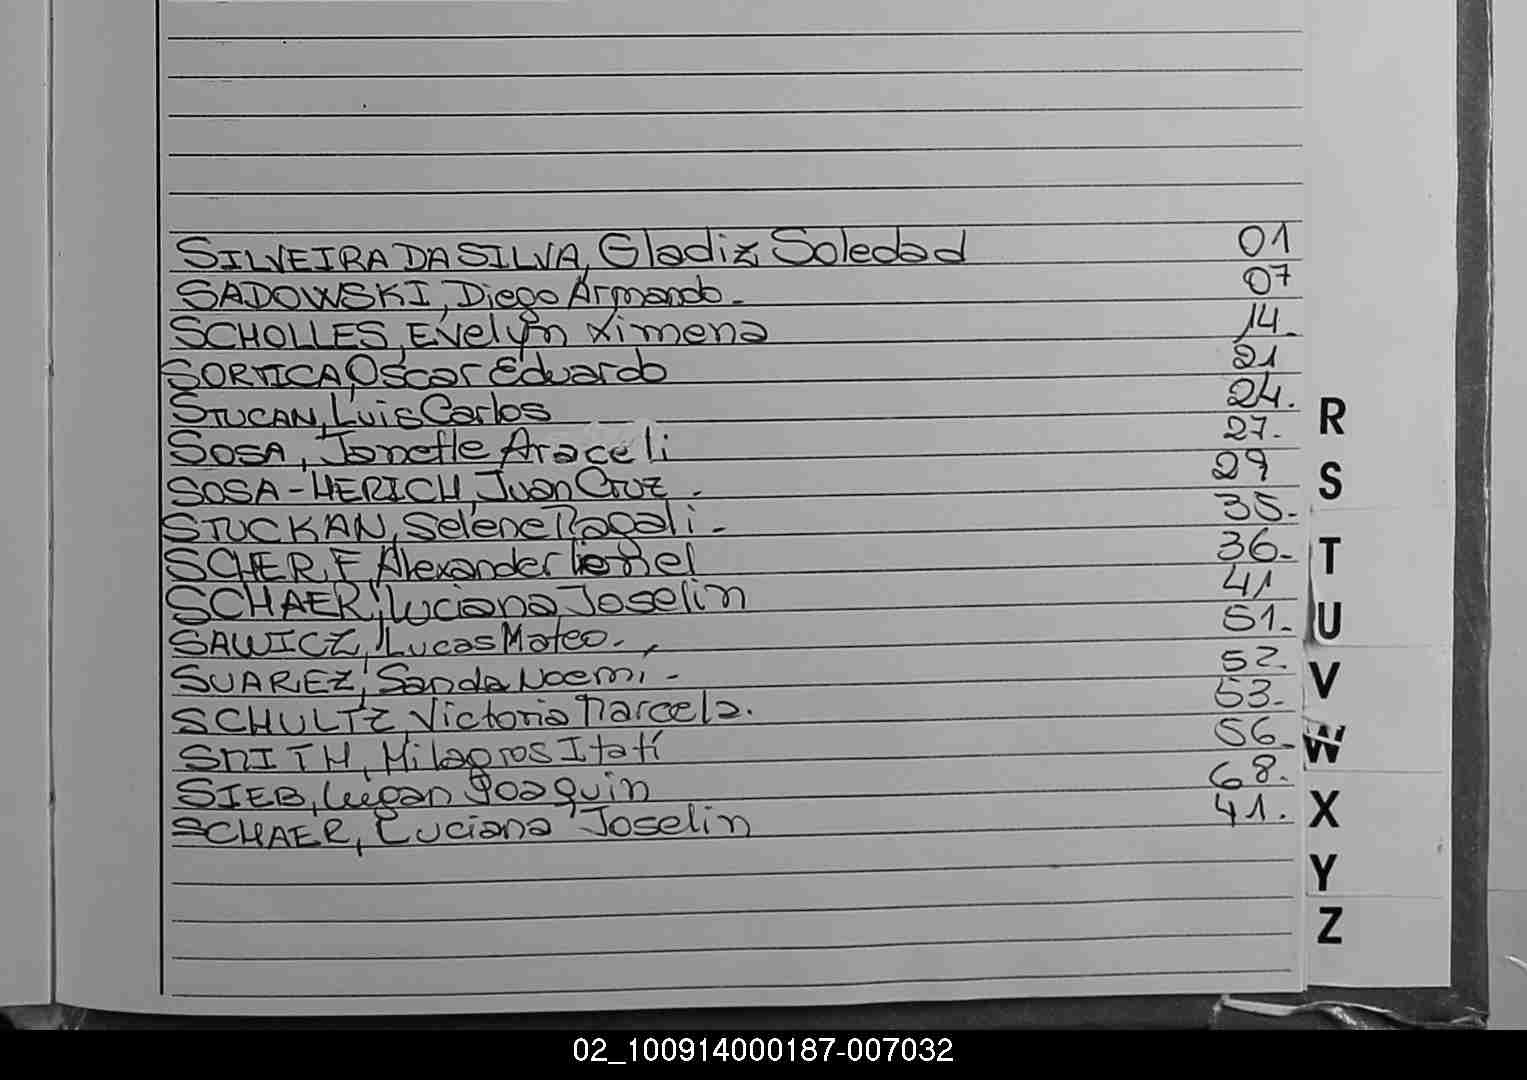 SILVEIRA DA SILVA, Gladiz Soledad 01
SADOWSKI, Diego Armando.- 07
SCHOLLES, Evelyn Ximena 14.-
SORTICA, Oscar Eduardo 21
STUCAN, Luis Carlos 24.
SOSA, Janette Araceli 27.-
SOSA-HERICH, Juan Cruz.- 29
STUCKAN, Selene Magali.- 35.-
SCHERF, Alexander 36.-
SCHAER, Luciana Joselin 41
SAWICZ, Lucas Mateo.- 51.-
SUAREZ, Sanda Noemi.- 52.-
SCHULTZ, Victoria Marcela. 53.-
SMITH, Milagros Itatí 56.-
SIEB, Joaquin 68.
SCHAER, Luciana Joselin 41.
R
S
T
U
V
W
X
Y
Z
02_100914000187-007032